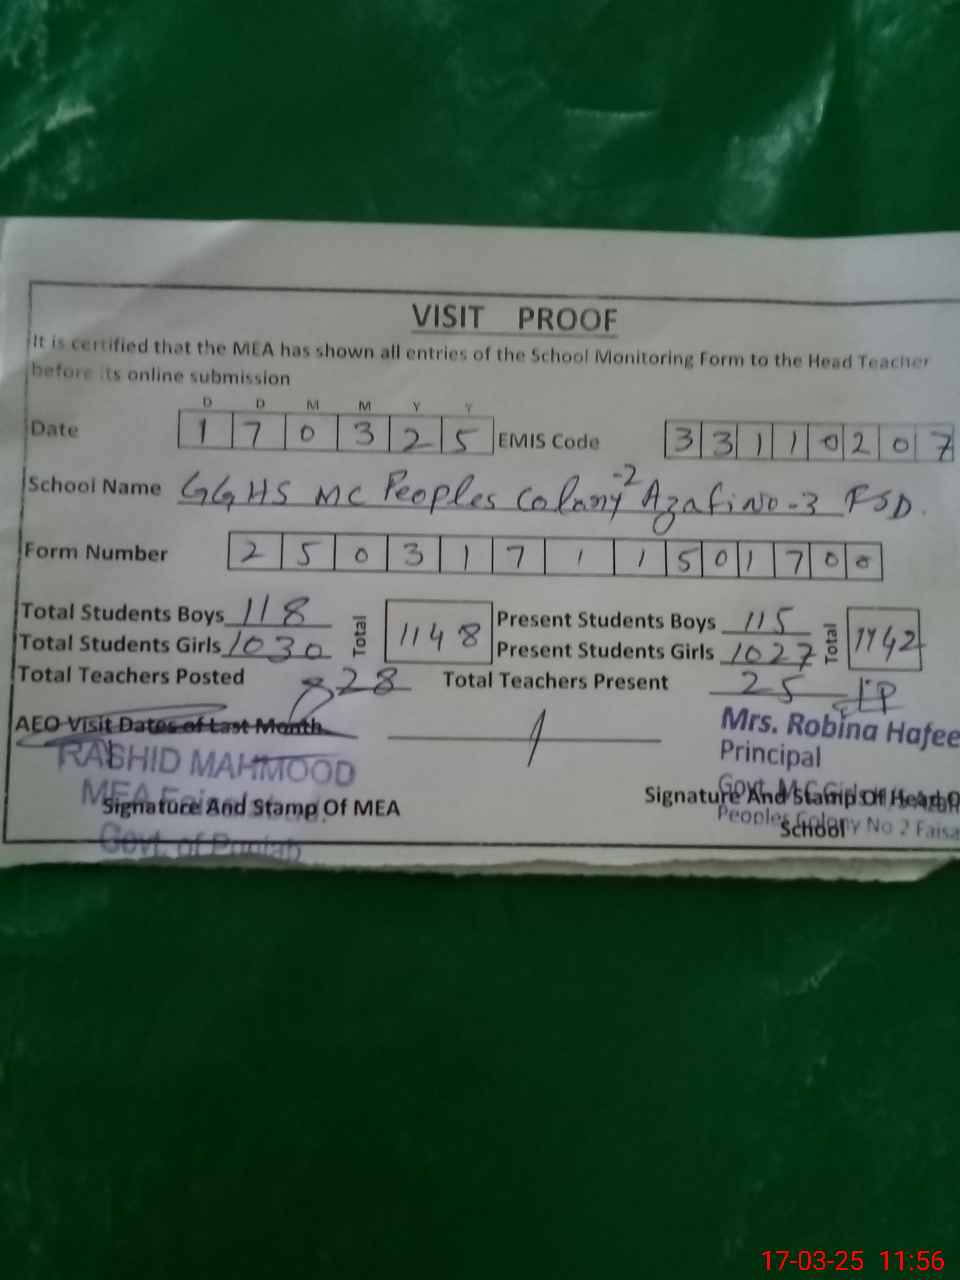 VISIT PROOF
It is certified that the MEA has shown all entries of the School Monitoring Form to the Head Teacher
before its online submission
D D M M Y Y
Date 1 7 0 3 2 5 EMIS Code 3 3 1 1 0 2 0 7
School Name GGHS MC Peoples Colony -2 Azafi No-3 FSD.
Form Number 2 5 0 3 1 7 1 1 5 0 1 7 0 0
Total Students Boys 118 Total 1148 Present Students Boys 115 Total 1142
Total Students Girls 1030 Present Students Girls 1027
Total Teachers Posted 28 Total Teachers Present 25
AEO Visit Dates of Last Month 1
Mrs. Robina Hafee
RASHID MAHMOOD Principal
MEA
Signature And Stamp Of MEA Signature And Stamp Of Head O
School
Govt. M.C Girls
Peoples Colony No 2 Faisa
Govt. of Punjab
17-03-25 11:56